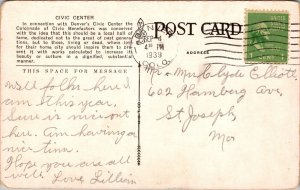 CIVIC CENTER
In conception Denver's Civic Center the
Colonnade of Civic Benefactors was conceived
with the idea that this should be a local hall of
fame, dedicated not to the great of past genera-
tions, but to those, living or dead, whose love
for their home city should inspire them to pre-
sent it with works calculated to increase its
beauty or culture in a dignified, substantial
manner.
THIS SPACE FOR MESSAGE
POST CARD
ADDRESS
4 30 PM
1939
COLO.
Well folks, here I
am this year.
Sure is nice out
here. Am having a
nice time.
Hope you are all
well. Love Lillian
Mr. + Mrs. Clyde Elliott
602 Hamburg Ave
St. Joseph,
Mo